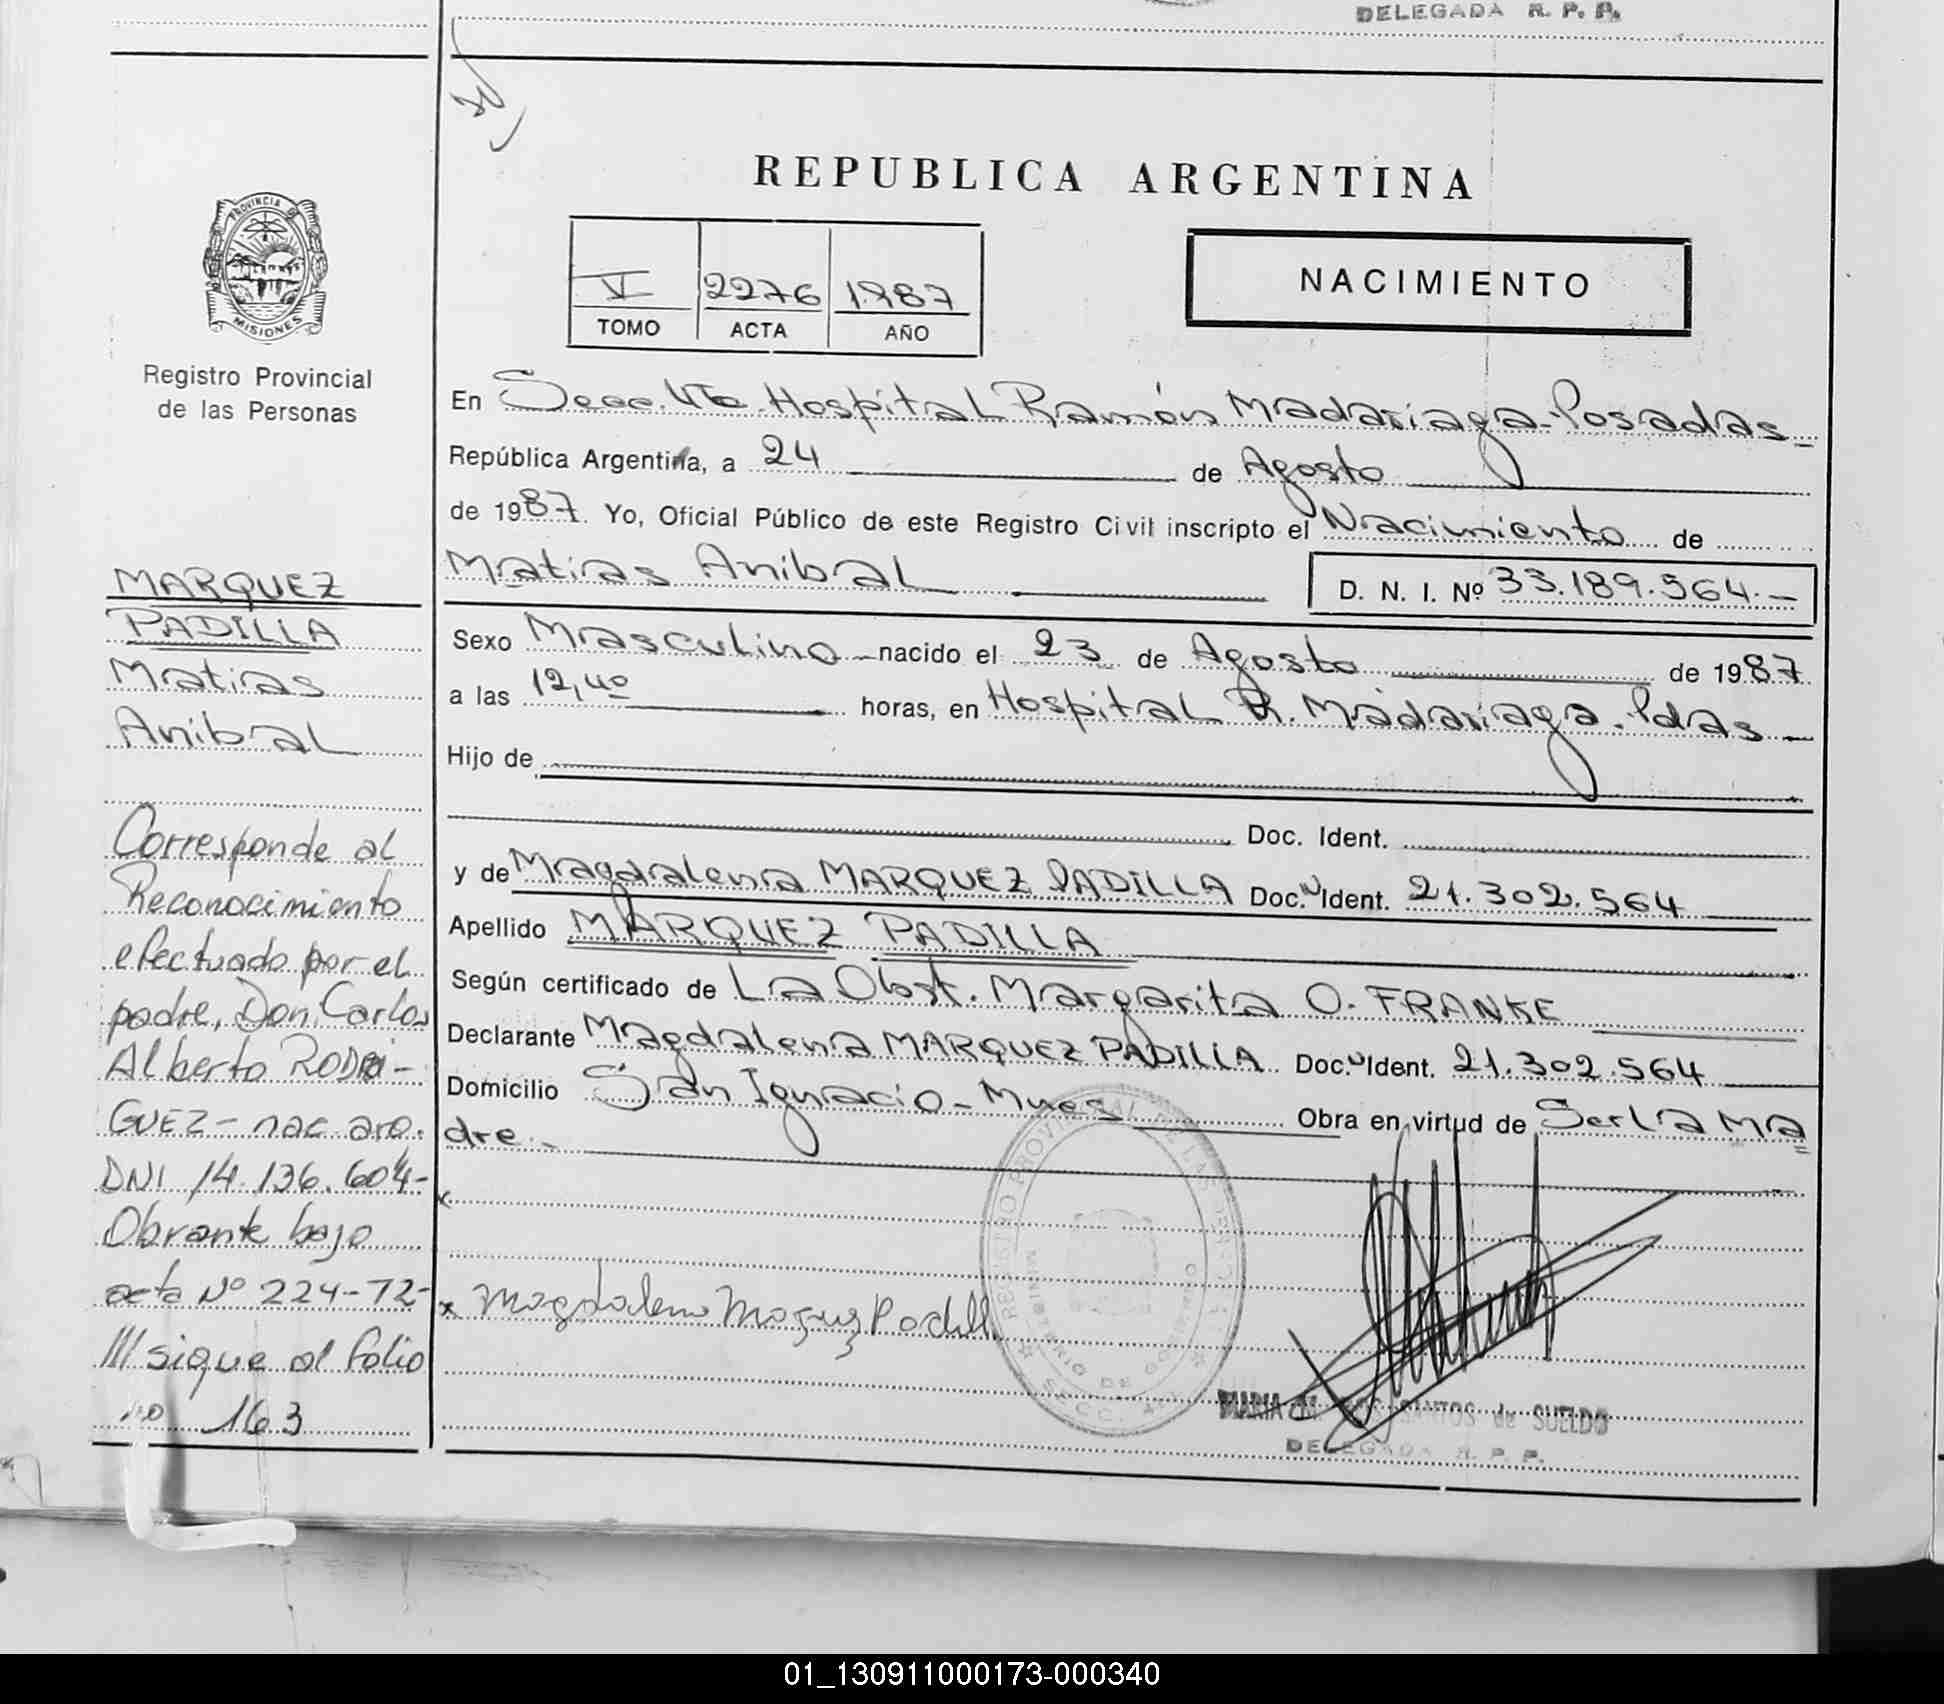 DELEGADA R. P. P.
REPUBLICA ARGENTINA
PROVINCIA D
MISIONES
Registro Provincial
de las Personas
V 2276 1987
TOMO ACTA AÑO
NACIMIENTO
En Secc. 4ta. Hospital Ramón Madariaga-Posadas-
República Argentina, a 24 de Agosto
de 1987. Yo, Oficial Público de este Registro Civil inscripto el Nacimiento de
Matias Anibal D. N. I. Nº 33.189.564.-
Sexo Masculino nacido el 23 de Agosto de 1987
a las 12,40 horas, en Hospital R. Madariaga. Pdas
Hijo de
Doc. Ident.
y de Magdalena MARQUEZ PADILLA Doc. Ident. 21.302.564
Apellido MARQUEZ PADILLA
Según certificado de La Obst. Margarita O. FRANKE
Declarante Magdalena MARQUEZ PADILLA Doc. Ident. 21.302.564
Domicilio San Ignacio-Mnes Obra en virtud de Ser La Ma
dre.-
x Magdalena Marquez Padill
REGISTRO PROVINCIAL DE LAS PERSONAS
MINISTERIO DE GOBIERNO
SECC. 4
MARIA SANTOS de SUELDO
DELEGADA R. P. P.
MARQUEZ
PADILLA
Matias
Anibal
Corresponde al
Reconocimiento
efectuado por el
padre, Don Carlos
Alberto RODRI-
GUEZ- nac arg.
DNI 14.136.604-
Obrante bajo
acta Nº 224-T2-
/// sigue al folio
no 163
01_130911000173-000340